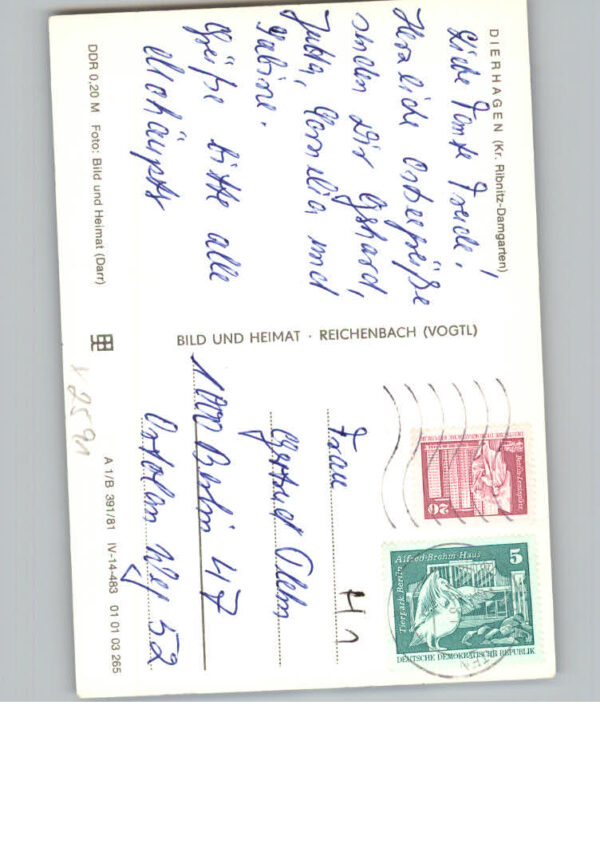 DIERHAGEN (Kr. Ribnitz-Damgarten)
Liebe Tante Friede!
Herzliche Ostseegrüße
senden Dir Gerhard,
Jutta, Cornelia und
Sabine.
Grüße bitte alle
DDR 0,20 M Foto: Bild und Heimat (Darr)
BILD UND HEIMAT · REICHENBACH (VOGTL)
Frau
Gertrud
1000 Berlin 47
Ortolan Weg 52
A 1/B 391/81 IV-14-483 01 01 03 265
V 2591
H 1
Berlin, Leninplatz
20
DEUTSCHE DEMOKRATISCHE REPUBLIK
Alfred-Brehm-Haus
5
Tierpark Berlin
DEUTSCHE DEMOKRATISCHE REPUBLIK